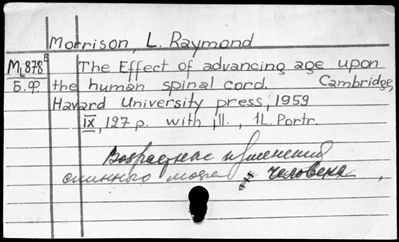 Morrison, L. Raymond
M878 The Effect of advancing age upon
Б.Ф. the human spinal cord. Cambridge,
Havard University press, 1959
IX, 127 p. with ill., 1L. Portr.
Возрастные изменения
спинного мозга человека